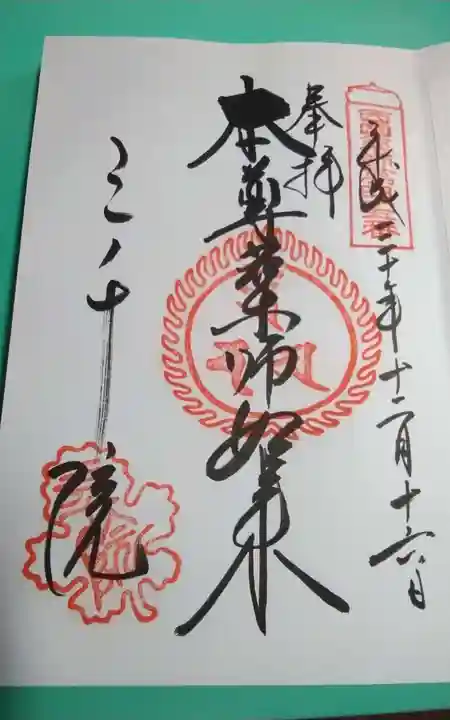 平成三十年十二月十六日
奉拝
本尊薬師如来
三千院